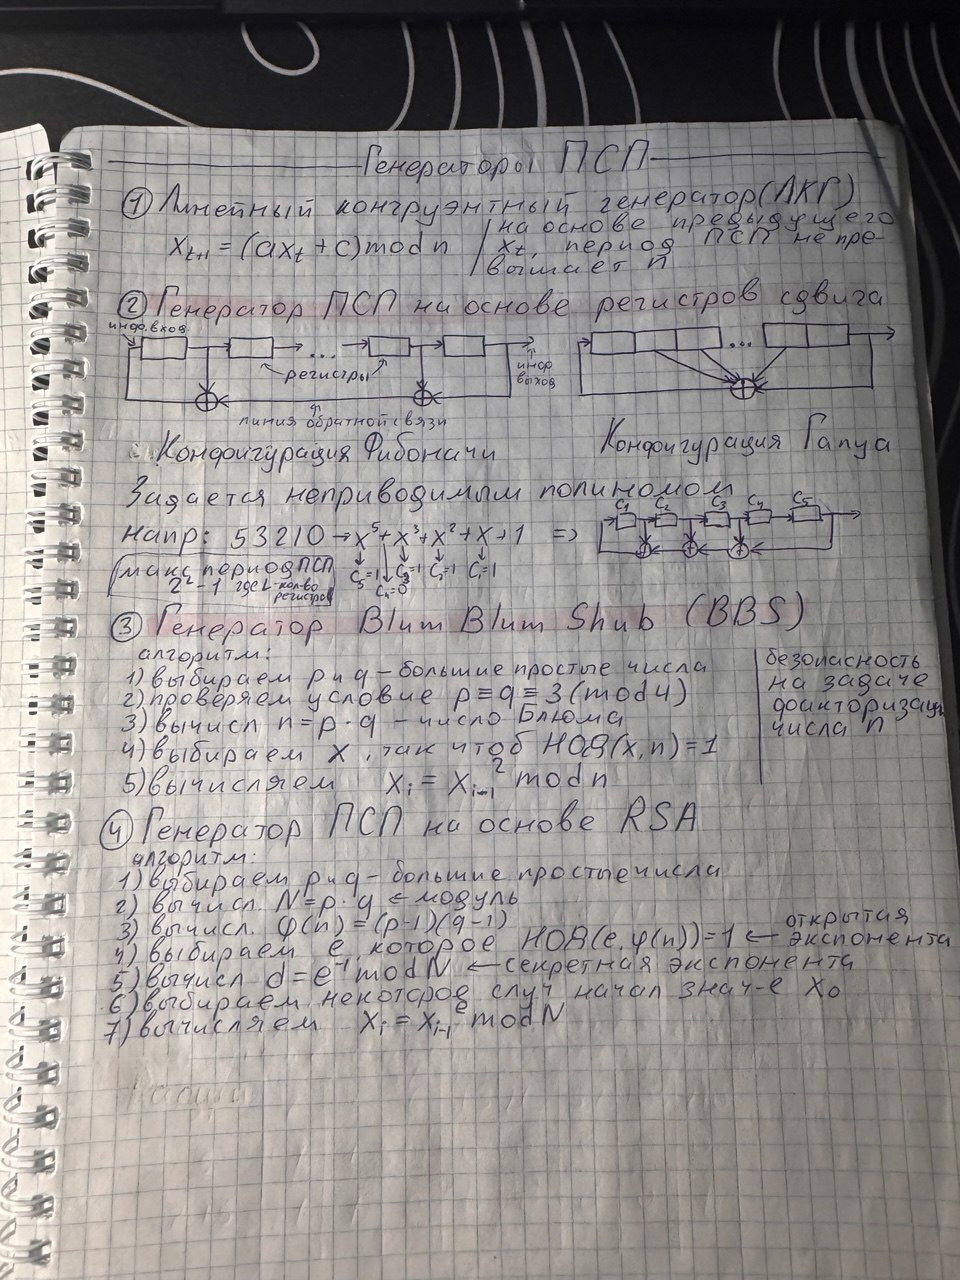 Генераторы ПСП
① Линейный конгруэнтный генератор (ЛКГ)
x_{t+1} = (ax_t + c) mod n
на основе предыдущего
x_t, период ПСП не пре-
вышает n
② Генератор ПСП на основе регистров сдвига
инф. вход
...
регистры
инф
выход
линия обратной связи
...
Конфигурация Фибоначи
Конфигурация Галуа
Задается неприводимым полиномом
напр: 53210 → x⁵+x³+x²+x+1 =>
C₁ C₂ C₃ C₄ C₅
C₅=1 C₄=0 C₃=1 C₂=1 C₁=1
макс период ПСП
2^L-1 где L-кол-во
регистров
③ Генератор Blum Blum Shub (BBS)
алгоритм:
1) выбираем p и q – большие простые числа
2) проверяем условие p≡q≡3(mod4)
3) вычисл n=p·q – число Блюма
4) выбираем x, так чтоб НОД(x,n)=1
5) вычисляем x_i = x_{i-1}² mod n
безопасность
на задаче
факторизац
числа n
④ Генератор ПСП на основе RSA
алгоритм:
1) выбираем p и q – большие простые числа
2) вычисл. N=p·q ← модуль
3) вычисл. φ(n)=(p-1)(q-1)
4) выбираем e, которое НОД(e,φ(n))=1 ← открытая экспонента
5) вычисл d=e⁻¹ mod N ← секретная экспонента
6) выбираем некоторое случ начал знач-е x₀
7) вычисляем x_i = x_{i-1}^e mod N